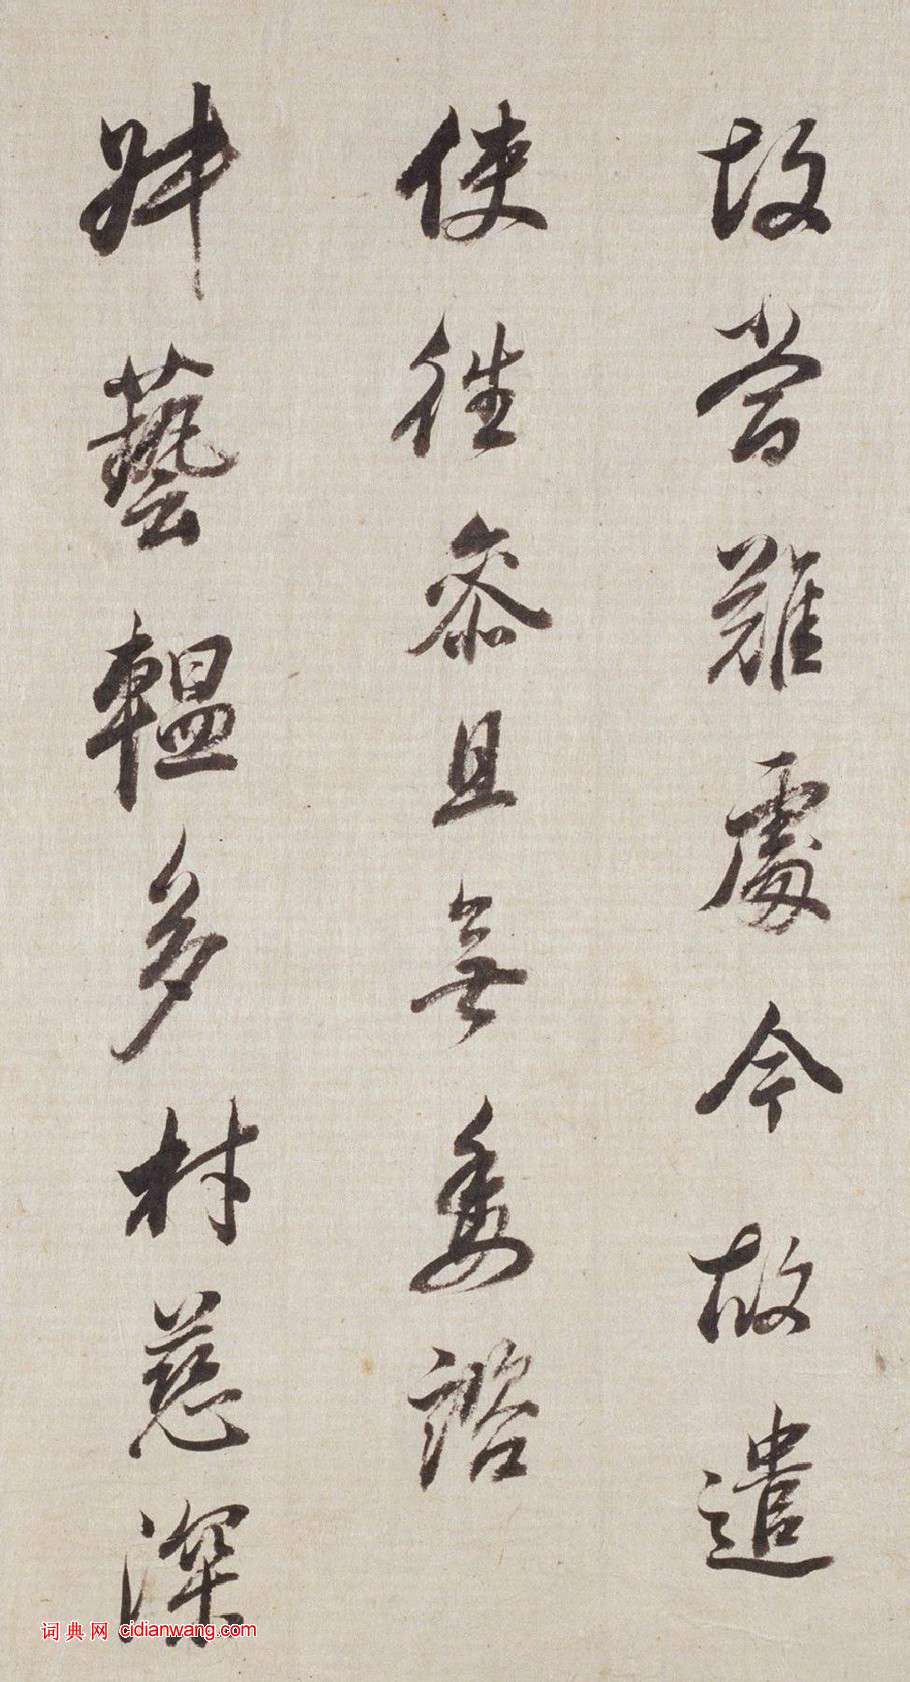 故當難處今故遣
使往參且無委諮
舛藝轀多材慈深
词典网 cidianwang.com